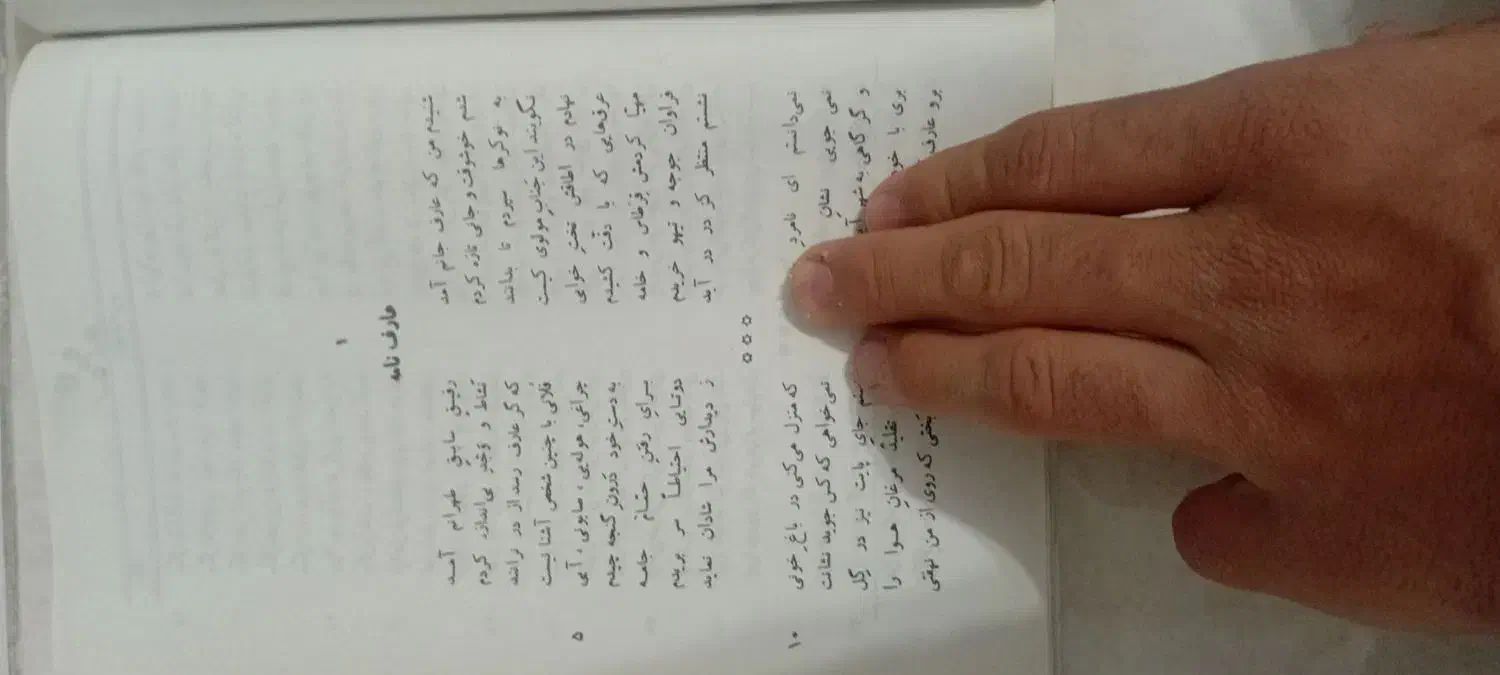 ۱
عارف نامه
شنیدم من که عارف جانم آمد رفیقِ سابقِ طهرانم آمـد
شدم خوشوقت و جانی تازه کردم نشاط و وَجْدِ بی‌اندازه کردم
به نوکرها سپردم تا بدانند که گر عارف رسد از در نرانند
نگویند این جنابِ مولوی کیست فُلانی با چنین شخص آشنا نیست
نهادم در اطاقش تختِ خوابی چراغی، هوله‌یی، صابونی، آبی ۵
عرق‌هایی که با دقّت کشیدم به دستِ خود دَرونِ گنجه چیدم
مهیّا کردمش قِرطاس و خامه بـرایِ رفتنِ حمّـام جامـه
فراوان جوجه و تیهو خریدم دوتـایی احتیاطـاً سر بریدم
نشستم منتظر کز در در آید ز دیـدارش مـرا شادان نماید
نمی‌دانستم ای نامردِ که منزل می‌کنی در باغِ خونی ۱۰
نمی جویی نشانِ نمی‌خواهی که کس جوید نشانت
و گر گاهی به شهر جایِ پایت نیز در گِل
بری با تقلیدْ مرغانِ هـوا را
برو عارف که روی از من نهفتی